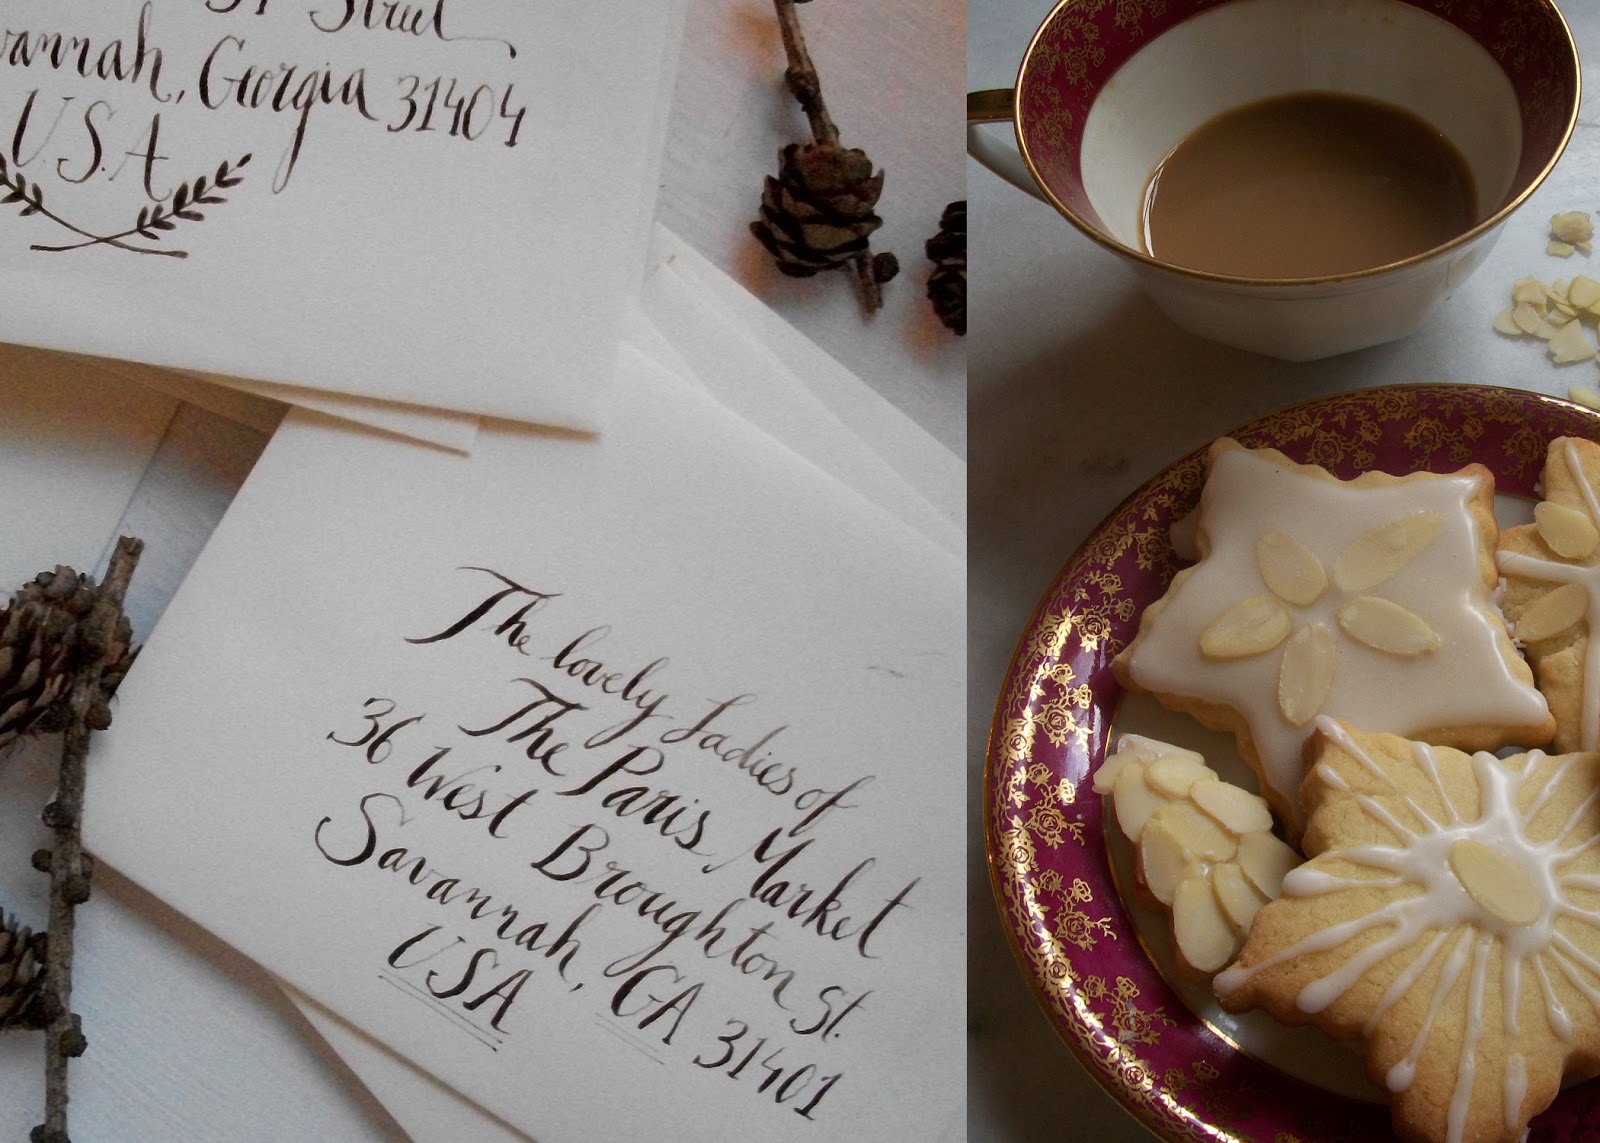 Street
Georgia 31404
U.S.A
The lovely Ladies of
The Paris Market
36 West Broughton St.
Savannah, GA 31401
USA